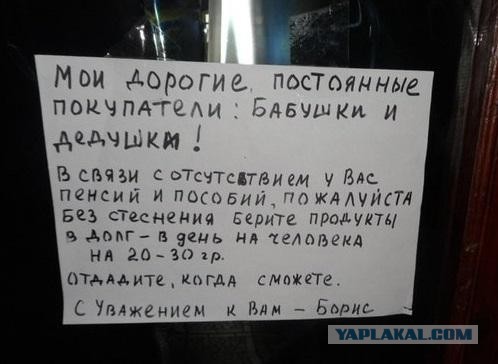 Мои дорогие, постоянные
покупатели: Бабушки и
дедушки!
В связи с отсутствием у Вас
пенсий и пособий, пожалуйста
без стеснения берите продукты
в долг – в день на человека
на 20-30 гр.
Отдадите, когда сможете.
С Уважением к Вам – Борис
YAPLAKAL.COM